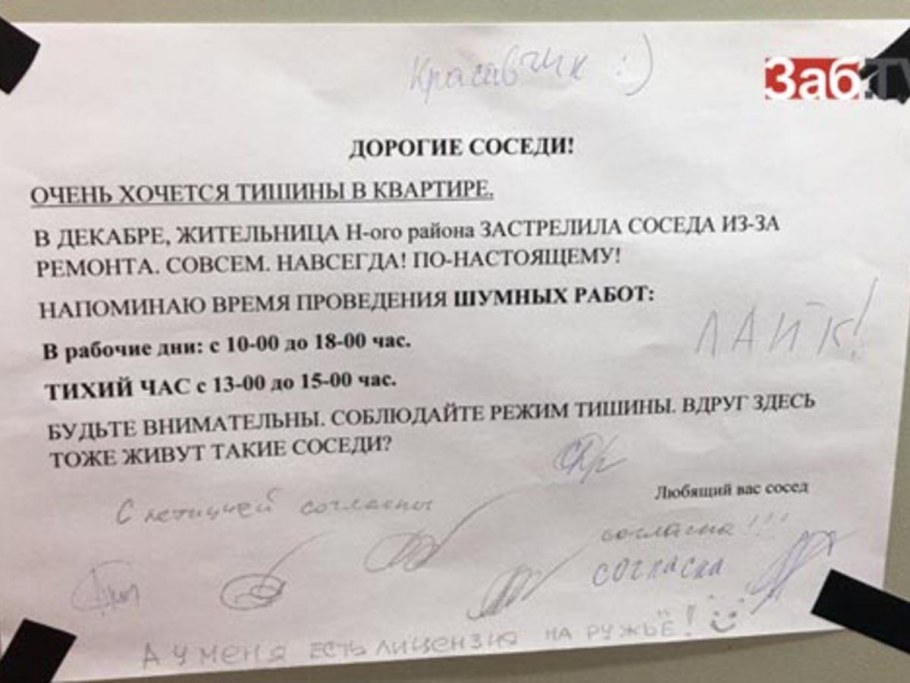 Красавчик :)
Заб.TV
ДОРОГИЕ СОСЕДИ!
ОЧЕНЬ ХОЧЕТСЯ ТИШИНЫ В КВАРТИРЕ.
В ДЕКАБРЕ, ЖИТЕЛЬНИЦА Н-ого района ЗАСТРЕЛИЛА СОСЕДА ИЗ-ЗА
РЕМОНТА. СОВСЕМ. НАВСЕГДА! ПО-НАСТОЯЩЕМУ!
НАПОМИНАЮ ВРЕМЯ ПРОВЕДЕНИЯ ШУМНЫХ РАБОТ:
В рабочие дни: с 10-00 до 18-00 час.
ЛАЙК!
ТИХИЙ ЧАС с 13-00 до 15-00 час.
БУДЬТЕ ВНИМАТЕЛЬНЫ. СОБЛЮДАЙТЕ РЕЖИМ ТИШИНЫ. ВДРУГ ЗДЕСЬ
ТОЖЕ ЖИВУТ ТАКИЕ СОСЕДИ?
Любящий вас сосед
С петицией согласны
согласна!!!
согласна
А у меня есть лицензия на ружьё!